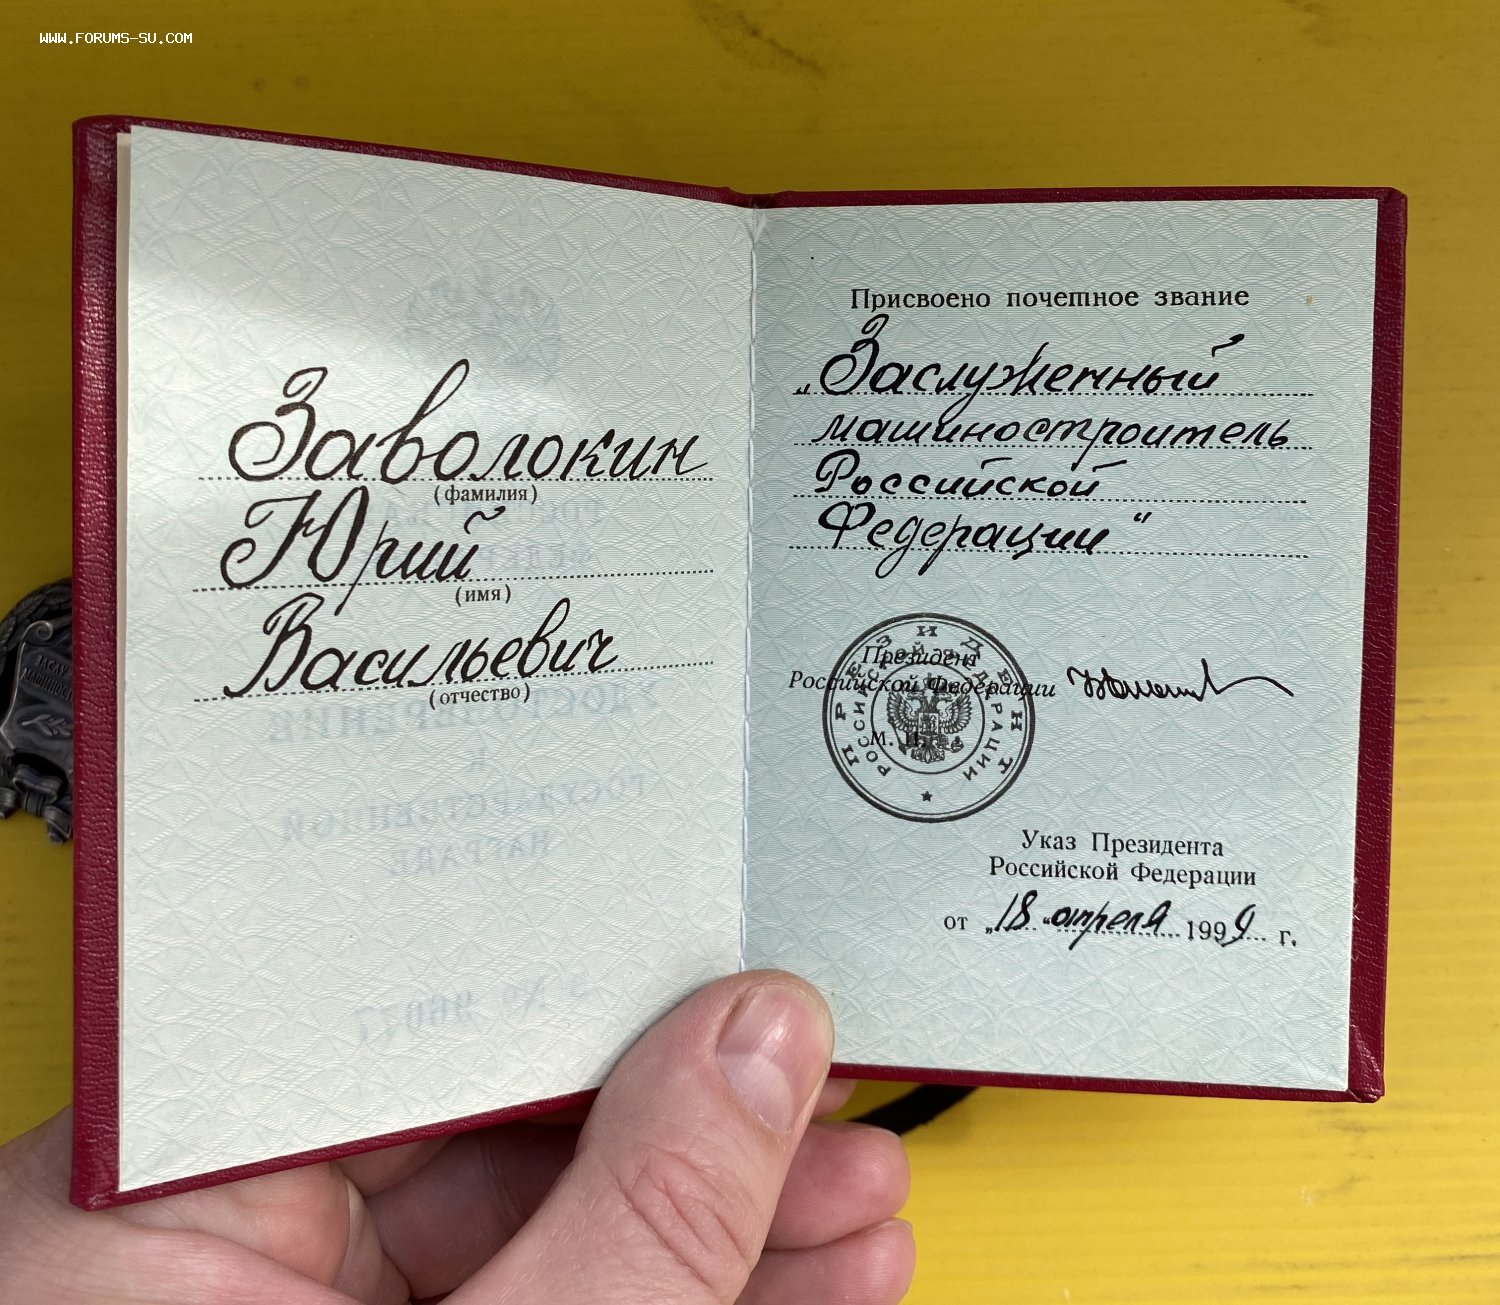 WWW.FORUMS-SU.COM
Заволокин
(фамилия)
Юрий
(имя)
Васильевич
(отчество)
УДОСТОВЕРЕНИЕ
К
ГОСУДАРСТВЕННОЙ
НАГРАДЕ
З № 96077
Присвоено почетное звание
„Заслуженный
машиностроитель
Российской
Федерации“
Президент
Российской Федерации
М. П.
ПРЕЗИДЕНТ
РОССИЙСКОЙ ФЕДЕРАЦИИ
Указ Президента
Российской Федерации
от „18“ апреля 1999 г.